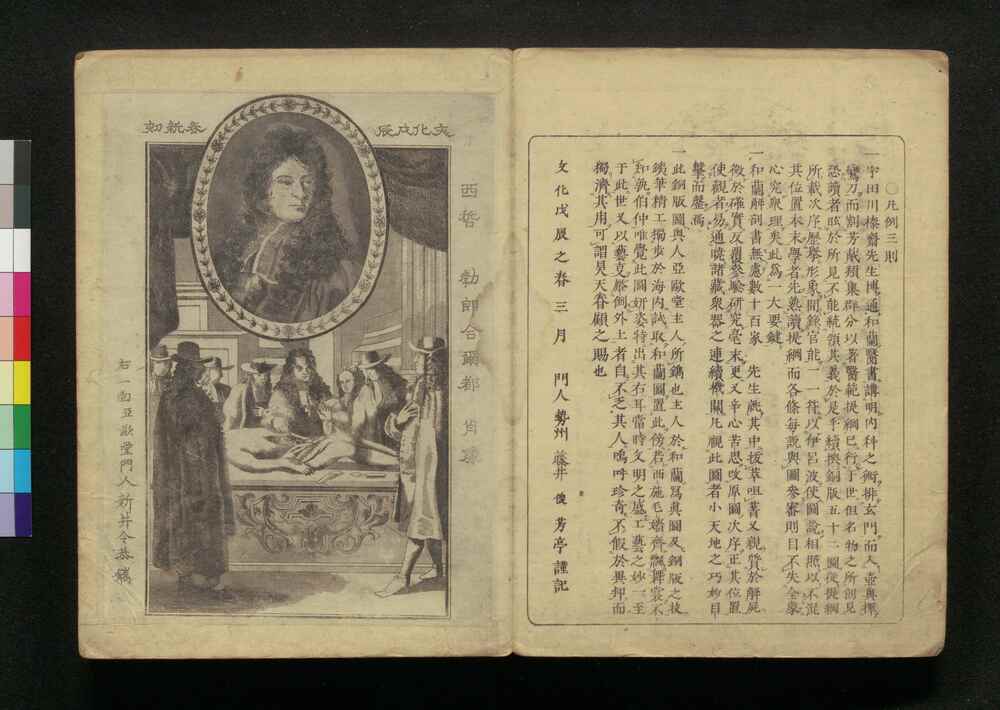 〇凡例三則
一宇田川榛齋先生博通和蘭醫書講明內科之術排玄門而入壺奧操
鸞刀而割芳㽎類集群分以著醫範提綱已行于世但名物之所創見
恐讀者眩於所見不能統領其義於是手續撰銅版五十二圖從提綱
所載次序歷擧形象開錄官能一一符以伊呂波使圖說相照以不混
其位置本末學者先熟讀提綱而各條每說與圖參審則目不失全豹
心究眾理矣此爲一大要鍵
一和蘭解剖書無慮數十百家 先生戲其中拔萃咀菁又親質於解屍
徵於確實反覆參驗研究毫末更又辛心苦思攷原圖次序正其位置
使觀者易通曉諸藏衆器之連續機關凡視此圖者小天地之巧妙目
擊而罄焉
一此銅版圖與人亞歐堂主人所鐫也主人於和蘭爲輿圖及銅版之技
鏤華精工獨步於海內試取和蘭圖置此傍若西施毛嬙齊飄舞裳不
知孰伯仲唯覺此圖妍姿特出其右耳當時文明之盛工藝之妙一至
于此世又以藝文磨倒外士者自不乏其人嗚呼珍奇不假於異邦而
獨濟其用可謂昊天眷顧之賜也
文化戊辰之春三月 門人勢州 藤井 俊 芳亭謹記
文化戊辰
春新刻
西哲 勃郎合爾都肖像
右一勃亞歐堂門人新井令恭鐫